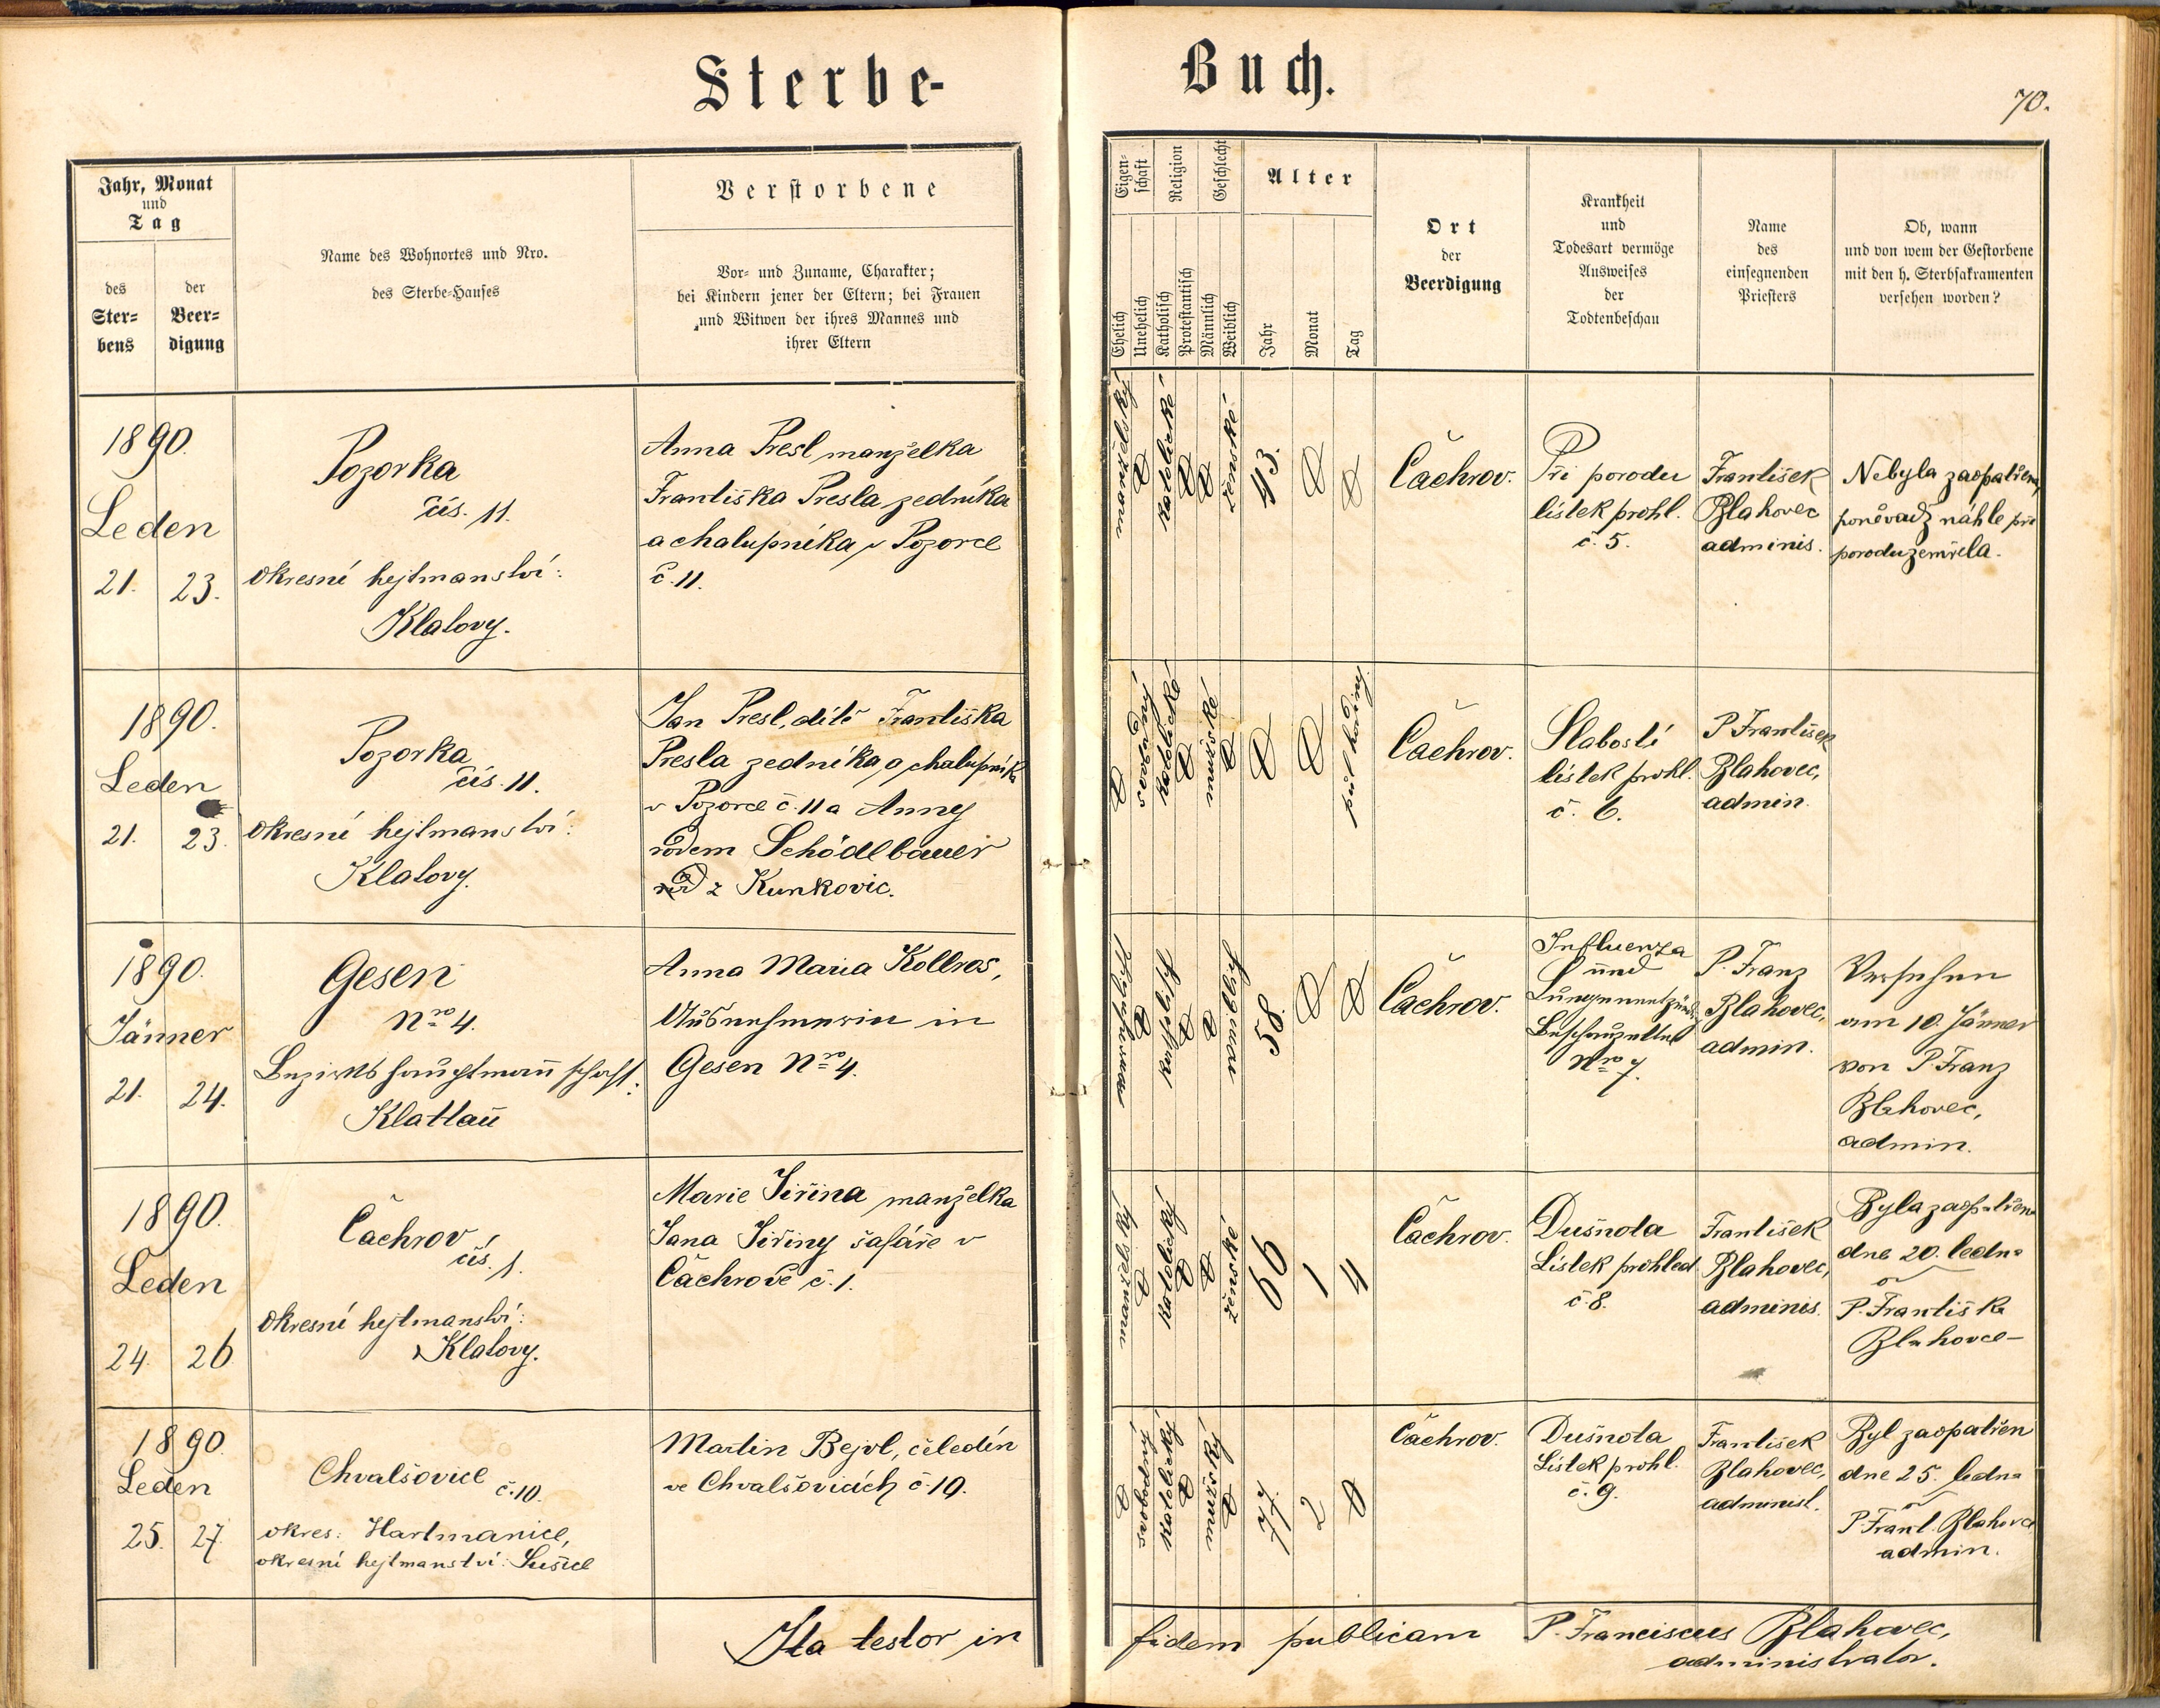 Sterbe-
Buch.
70.
Jahr, Monat
und
Tag
des
Ster=
bens
der
Beer=
digung
Name des Wohnortes und Nro.
des Sterbe=Hauses
Verstorbene
Vor= und Zuname, Charakter;
bei Kindern jener der Eltern; bei Frauen
und Witwen der ihres Mannes und
ihrer Eltern
Eigen=
schaft
Religion
Geschlecht
Alter
Ehelich
Unehelich
Katholisch
Protestantisch
Männlich
Weiblich
Jahr
Monat
Tag
Ort
der
Beerdigung
Krankheit
und
Todesart vermöge
Ausweises
der
Todtenbeschau
Name
des
einsegnenden
Priesters
Ob, wann
und von wem der Gestorbene
mit den h. Sterbsakramenten
versehen worden?
1890.
Leden
21. 23.
Pozorka
čís. 11.
okresní hejtmanství:
Klatovy.
Anna Presl manželka
Františka Presla zedníka
a chalupníka v Pozorce
č. 11.
katolické
ženské
43.
Čachrov.
Při porodu
lístek prohl.
č. 5.
František
Blahovec
adminis.
Nebyla zaopatřena,
poněvadž náhle při
porodu zemřela.
1890.
Leden
21. 23.
Pozorka
čís. 11.
okresní hejtmanství:
Klatovy.
Jan Presl, dítě Františka
Presla zedníka a chalupníka
v Pozorce č. 11 a Anny
rodem Schödlbauer
z Kunkovic.
katolické
mužské
půl hodiny.
Čachrov.
Slabostí
lístek prohl.
č. 6.
P. František
Blahovec,
admin.
1890.
Jänner
21. 24.
Gesen
Nro 4.
Bezirkshauptmannschaft:
Klattau
Anna Maria Kollros,
Ausnehmerin in
Gesen Nro 4.
katholisch
weiblich
58.
Čachrov.
Influenza
und
Lungenentzündg
Beschauzettel
Nro 7.
P. Franz
Blahovec,
admin.
Versehen
am 10. Jänner
von P. Franz
Blahovec,
admin.
1890.
Leden
24. 26
Čachrov
čís. 1.
okresní hejtmanství:
Klatovy.
Marie Jiřina manželka
Jana Jiřiny šafáře v
Čachrově č. 1.
katolický
ženské
66
1
4
Čachrov.
Dušnota
Lístek prohled
č. 8.
František
Blahovec,
adminis.
Byla zaopatřena
dne 20. ledna
od
P. Františka
Blahovce
1890.
Leden
25. 27.
Chvalšovice č. 10.
okres: Hartmanice,
okresní hejtmanství: Sušice
Martin Bejvl, čeledín
ve Chvalšovicích č. 10.
svobodný
katolický
mužský
77.
2
Čachrov.
Dušnota
Lístek prohl.
č. 9.
František
Blahovec,
administ.
Byl zaopatřen
dne 25. ledna
od
P. Frant. Blahovce
admin.
Ita testor in fidem publicam P. Franciscus Blahovec,
administrator.